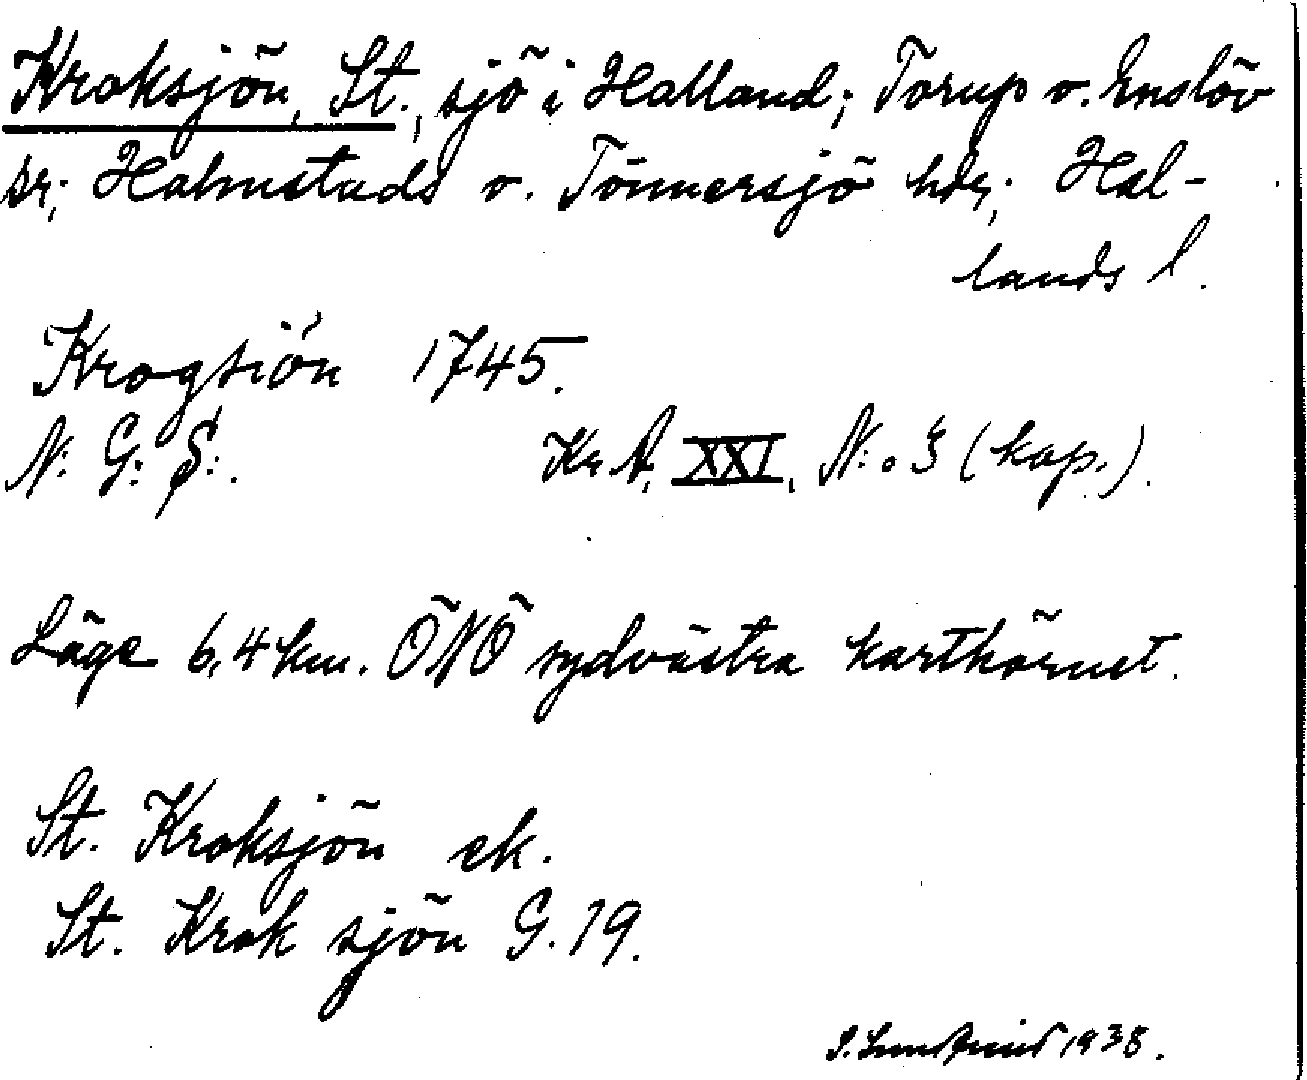 Kroksjön, St., sjö i Halland; Torup o. Enslöv
sr; Halmstads o. Tönnersjö hdr; Hal-
lands l.
Krogsiön 1745.
N: G: S:. Kr. A, XXI, N:o 3 (kop.).
Läge 6,4 km. ÖNÖ sydvästra karthörnet.
St. Kroksjön ek.
St. Krok sjön G. 19.
1938.